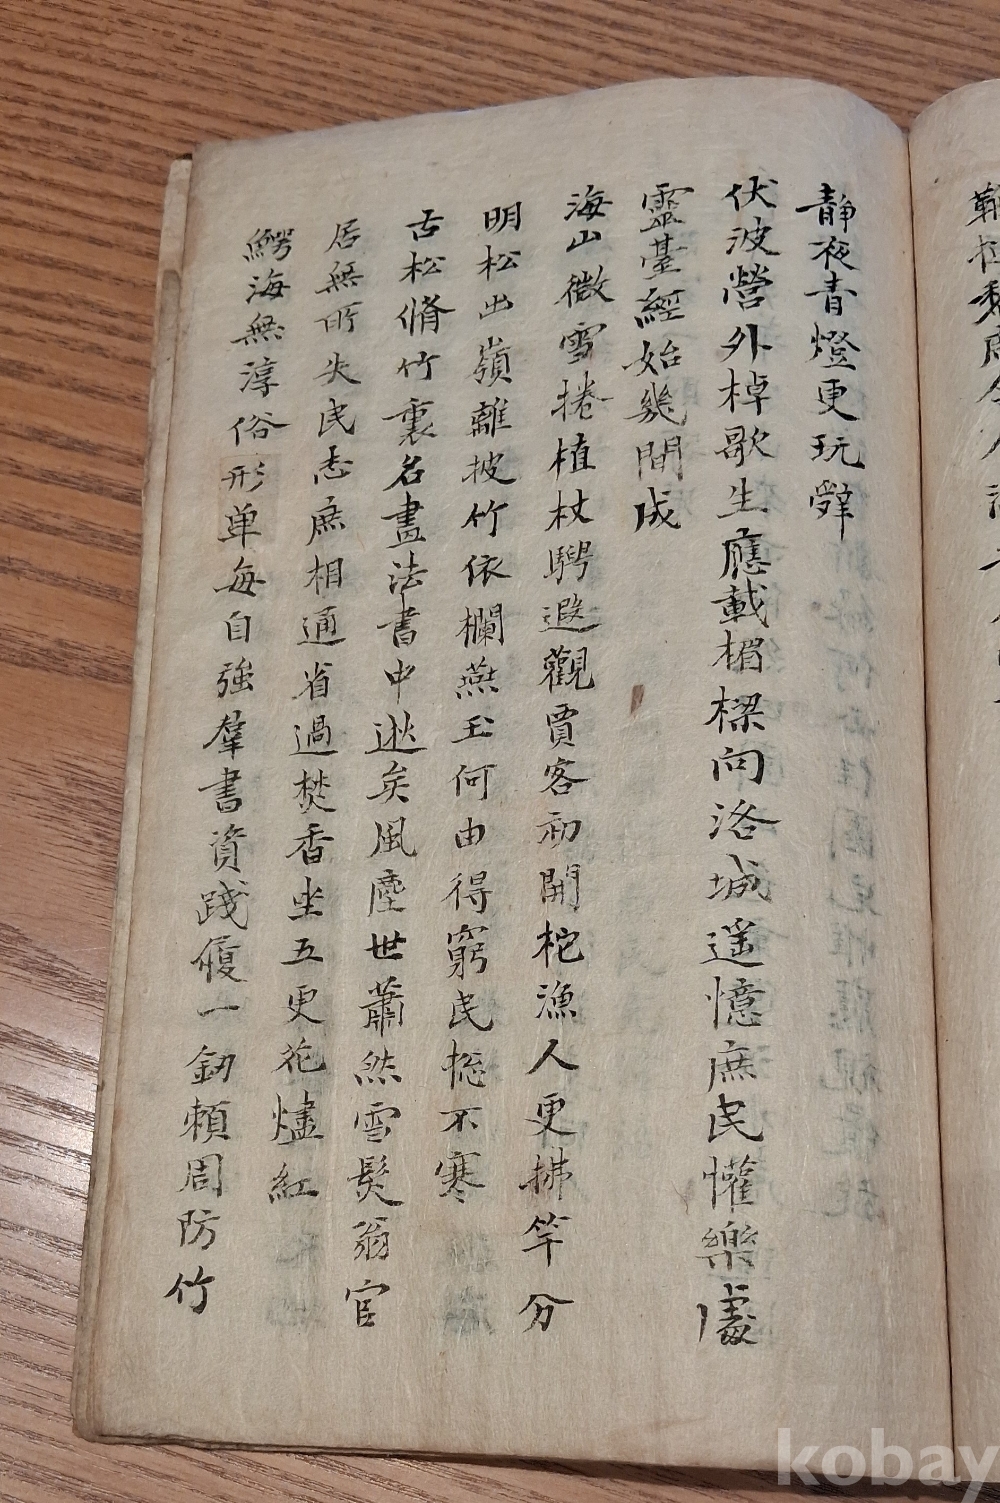 靜夜青燈更玩辭
伏波營外棹歌生應載楣樑向洛城遥憶庶民懽樂處
靈臺經始幾間成
海山微雪捲植杖騁遐觀賈客初開柁漁人更拂竿分
明松出嶺離披竹依欄燕玉何由得窮民揔不寒
古松脩竹裏名畫法書中逖矣風塵世蕭然雪髮翁官
居無所失民志庶相通省過焚香坐五更花燼紅
鰐海無淳俗形單每自強羣書資踐履一釼賴周防竹
kobay